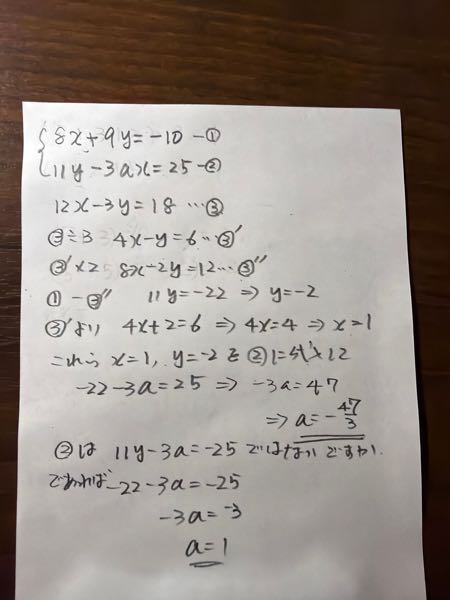 8x+9y=-10 -①
11y-3ax=25 -②
12x-3y=18 …③
③÷3 4x-y=6…③'
③'×2 8x-2y=12…③''
①-③'' 11y=-22 ⇒ y=-2
③'より 4x+2=6 ⇒ 4x=4 ⇒ x=1
これら x=1, y=-2を②に代入
-22-3a=25 ⇒ -3a=47
⇒ a=-47/3
②は 11y-3a=-25 ではないですか.
であれば -22-3a=-25
-3a=-3
a=1